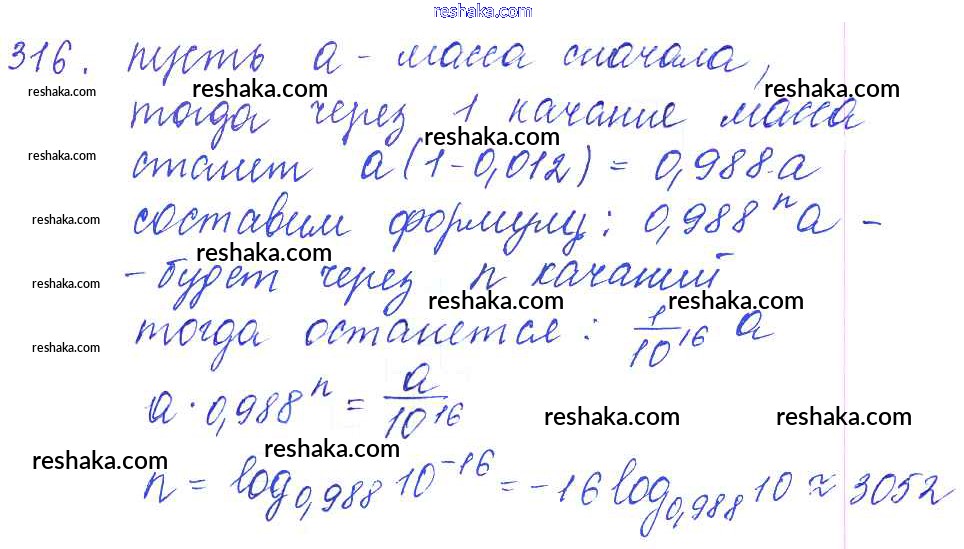 reshaka.com
316. пусть a - масса сначала,
reshaka.com reshaka.com reshaka.com
тогда через 1 качание масса
reshaka.com reshaka.com
станет a(1-0,012) = 0,988·a
составим формулу: 0,988ⁿa -
reshaka.com reshaka.com
- будет через n качаний
reshaka.com reshaka.com reshaka.com
тогда останется: 1/10¹⁶ a
reshaka.com
a · 0,988ⁿ = a/10¹⁶
reshaka.com reshaka.com
reshaka.com reshaka.com
n = log₀,₉₈₈ 10⁻¹⁶ = -16 log₀,₉₈₈ 10 ≈ 3052